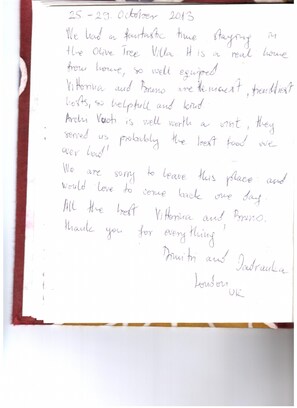 25 - 29 October 2013
We had a fantastic time staying in
the Olive Tree Villa. It is a real home
from home, so well equiped
Vittorina and Bruno are finnest, friendliest
hosts, so helpfull and kind
is well worth a visit, they
served us probably the best food we
ever had!
We are sorry to leave this place and
would love to come back one day.
All the best Vittorina and Bruno.
thank you for everything!
Dimitri and
London
UK